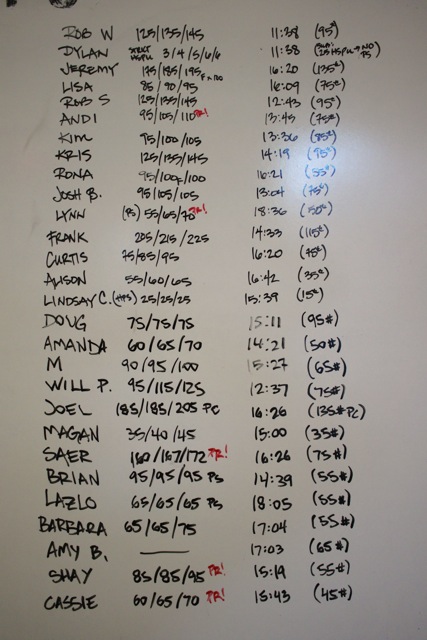 ROB W 125/135/145 11:38 (95#)
DYLAN STRICT HSPU 3/4/5/6/6 11:58
JEREMY 175/185/195 16:20 (135#)
LISA 85/90/95 16:09 (75#)
ROB S 125/135/145 12:43 (95#)
ANDI 95/105/110 PR! 13:45 (75#)
KIM 95/100/105 13:36
KRIS 125/135/145 14:19 (95#)
RONA 95/100/100 16:21 (55#)
JOSH B. 95/105/105 13:04 (75#)
LYNN 55/65/70 PR! 18:36 (50#)
FRANK 205/215/225 14:33 (115#)
CURTIS 75/85/95 16:20 (75#)
ALISON 55/60/65 16:42 (35#)
LINDSAY C. 25/25/25 15:39 (15#)
DOUG 75/75/75 15:11 (95#)
AMANDA 60/65/70 14:21 (50#)
M 90/95/100 15:27 (65#)
WILL P. 95/115/125 12:37 (75#)
JOEL 185/185/205 PC 16:26 (135# PC)
MAGAN 35/40/45 15:00 (35#)
SAER 160/167/172 PR! 16:26 (75#)
BRIAN 95/95/95 PS 14:39 (55#)
LAZLO 65/65/65 PS 18:05 (55#)
BARBARA 65/65/75 17:04 (55#)
AMY B. — 17:03 (65#)
SHAY 85/85/95 PR! 15:19 (55#)
CASSIE 60/65/70 PR! 15:43 (45#)